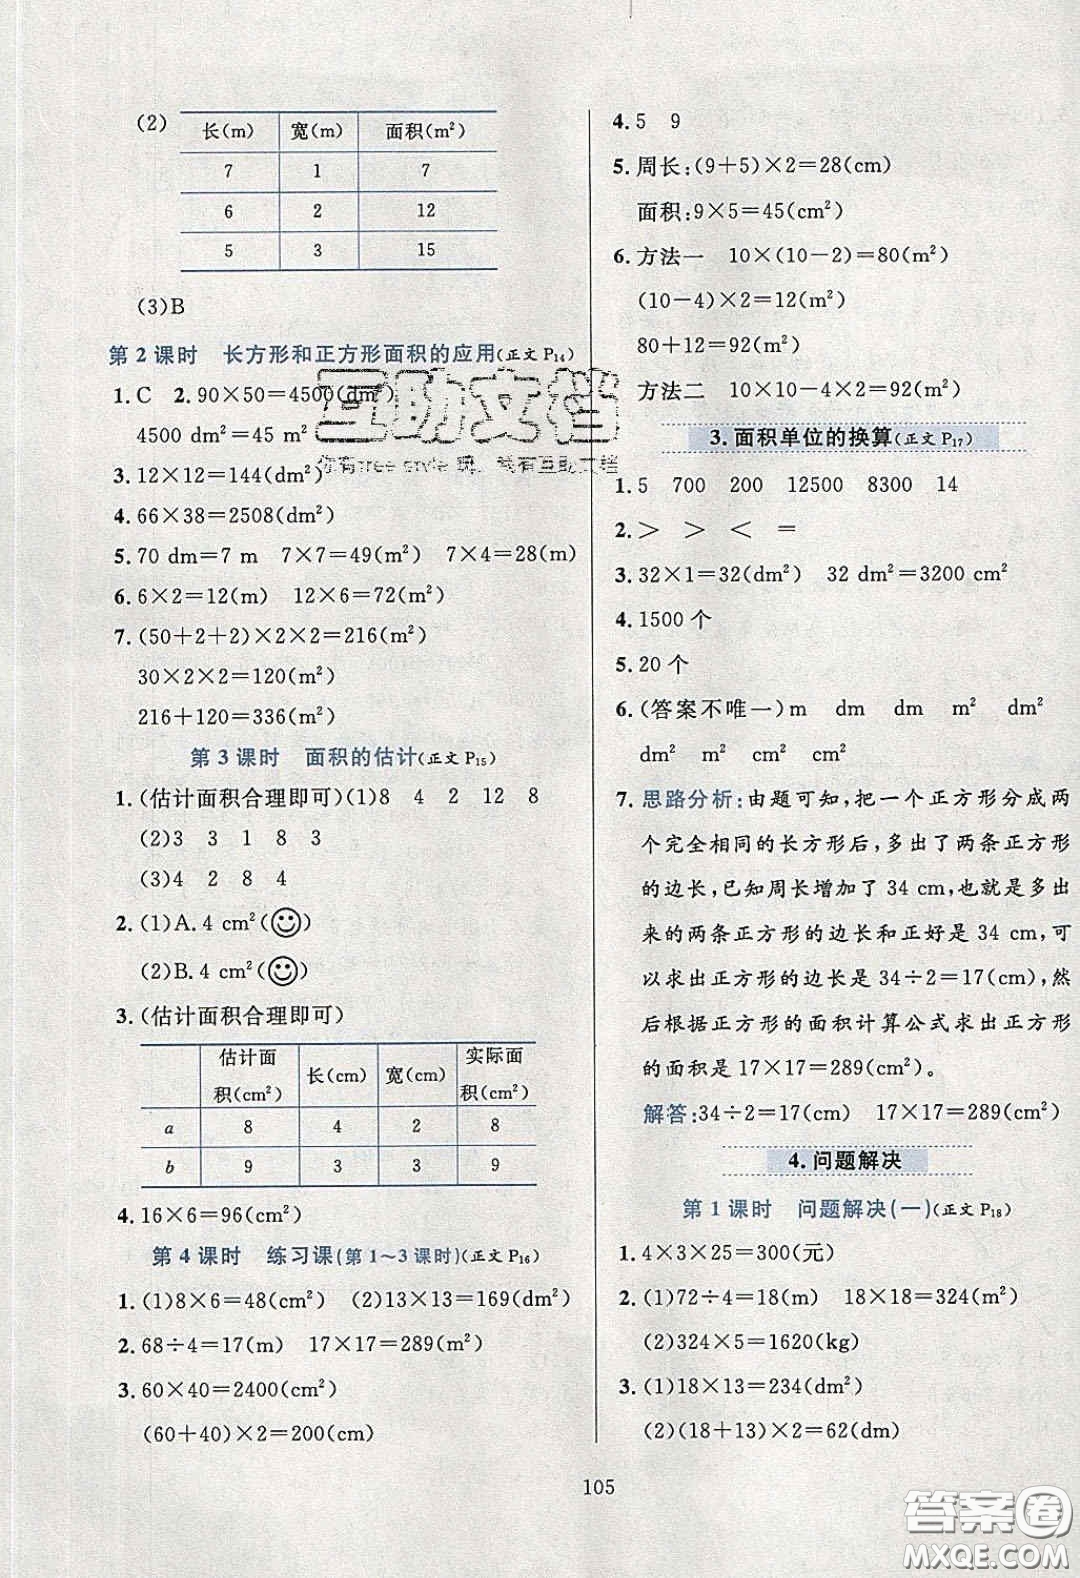 (2)
长(m) 宽(m) 面积(m²)
7 1 7
6 2 12
5 3 15
(3)B
第2课时 长方形和正方形面积的应用(正文P14)
1.C 2.90×50=4500(dm²)
4500 dm²=45 m²
3.12×12=144(dm²)
4.66×38=2508(dm²)
5.70 dm=7 m 7×7=49(m²) 7×4=28(m)
6.6×2=12(m) 12×6=72(m²)
7.(50+2+2)×2×2=216(m²)
30×2×2=120(m²)
216+120=336(m²)
第3课时 面积的估计(正文P15)
1.(估计面积合理即可)(1)8 4 2 12 8
(2)3 3 1 8 3
(3)4 2 8 4
2.(1)A.4 cm²(☺)
(2)B.4 cm²(☺)
3.(估计面积合理即可)
估计面积(cm²) 长(cm) 宽(cm) 实际面积(cm²)
a 8 4 2 8
b 9 3 3 9
4.16×6=96(cm²)
第4课时 练习课(第1~3课时)(正文P16)
1.(1)8×6=48(cm²) (2)13×13=169(dm²)
2.68÷4=17(m) 17×17=289(m²)
3.60×40=2400(cm²)
(60+40)×2=200(cm)
4.5 9
5.周长:(9+5)×2=28(cm)
面积:9×5=45(cm²)
6.方法一 10×(10-2)=80(m²)
(10-4)×2=12(m²)
80+12=92(m²)
方法二 10×10-4×2=92(m²)
3.面积单位的换算(正文P17)
1.5 700 200 12500 8300 14
2.> > < =
3.32×1=32(dm²) 32 dm²=3200 cm²
4.1500个
5.20个
6.(答案不唯一)m dm dm m² dm²
dm² m² cm² cm²
7.思路分析:由题可知,把一个正方形分成两
个完全相同的长方形后,多出了两条正方形
的边长,已知周长增加了34 cm,也就是多出
来的两条正方形的边长和正好是34 cm,可
以求出正方形的边长是34÷2=17(cm),然
后根据正方形的面积计算公式求出正方形
的面积是17×17=289(cm²)。
解答:34÷2=17(cm) 17×17=289(cm²)
4.问题解决
第1课时 问题解决(一)(正文P18)
1.4×3×25=300(元)
2.(1)72÷4=18(m) 18×18=324(m²)
(2)324×5=1620(kg)
3.(1)18×13=234(dm²)
(2)(18+13)×2=62(dm)
105
互助文档
你有free style 嘿, 我有互助文档
答案圈
MXQE.COM